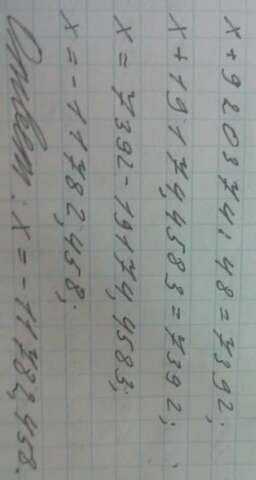 x + 920374 : 48 = 7392;
x + 19174,4583 = 7392;
x = 7392 - 19174,4583;
x = - 11782,458;
Ответ: x = - 11782,458.